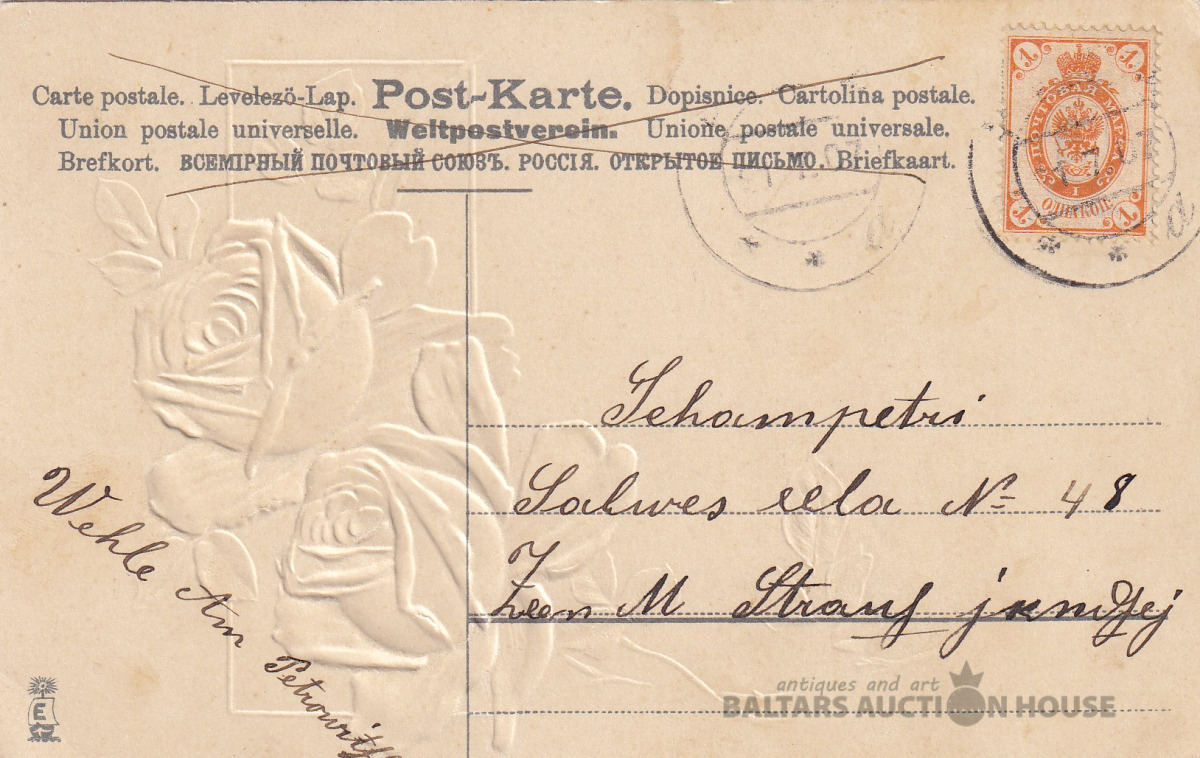 Carte postale. Levelező-Lap. Post-Karte. Dopisnice. Cartolina postale.
Union postale universelle. Weltpostverein. Unione postale universale.
Brefkort. ВСЕМІРНЫЙ ПОЧТОВЫЙ СОЮЗЪ. РОССІЯ. ОТКРЫТОЕ ПИСЬМО. Briefkaart.
1 1
ПОЧТОВАЯ МАРКА
1
ОДНА КОП.
1 1
Schampetri
Salwes eela № 48
M Strauß
Wehle Am
E
antiques and art
BALTARS AUCTION HOUSE